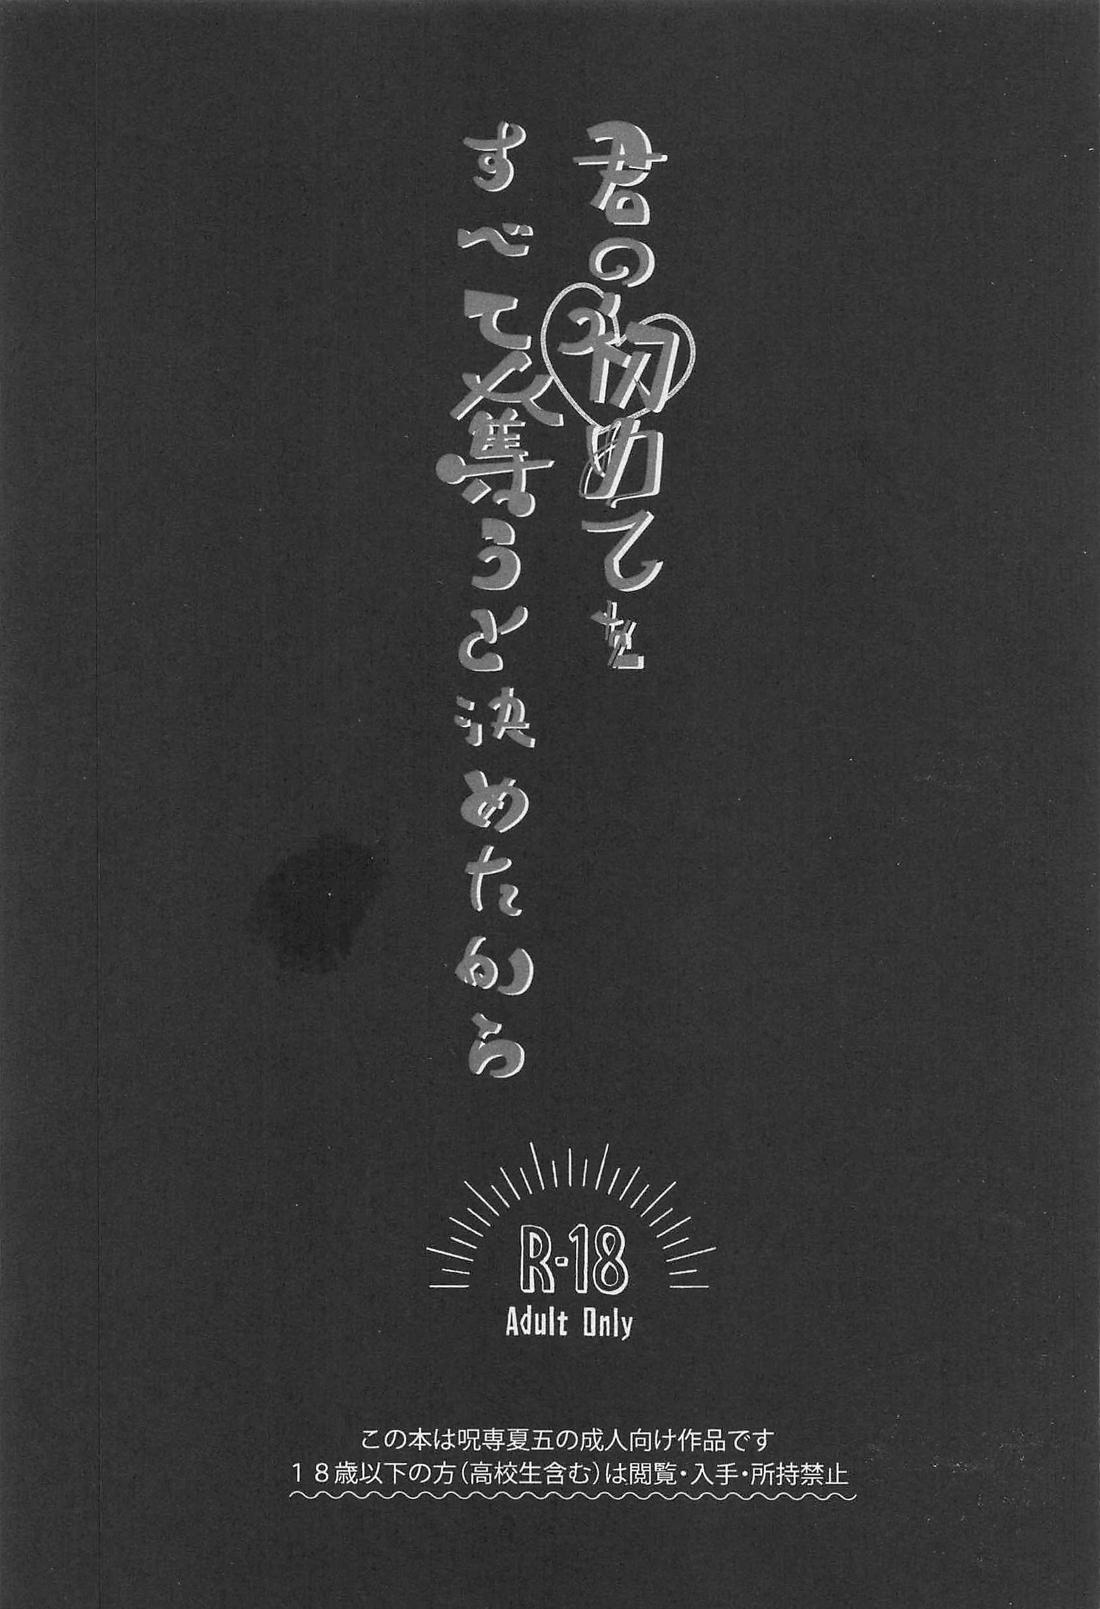 君の初めてを
すべて奪うと決めたから
R-18
Adult Only
この本は呪専夏五の成人向け作品です
１８歳以下の方（高校生含む）は閲覧・入手・所持禁止